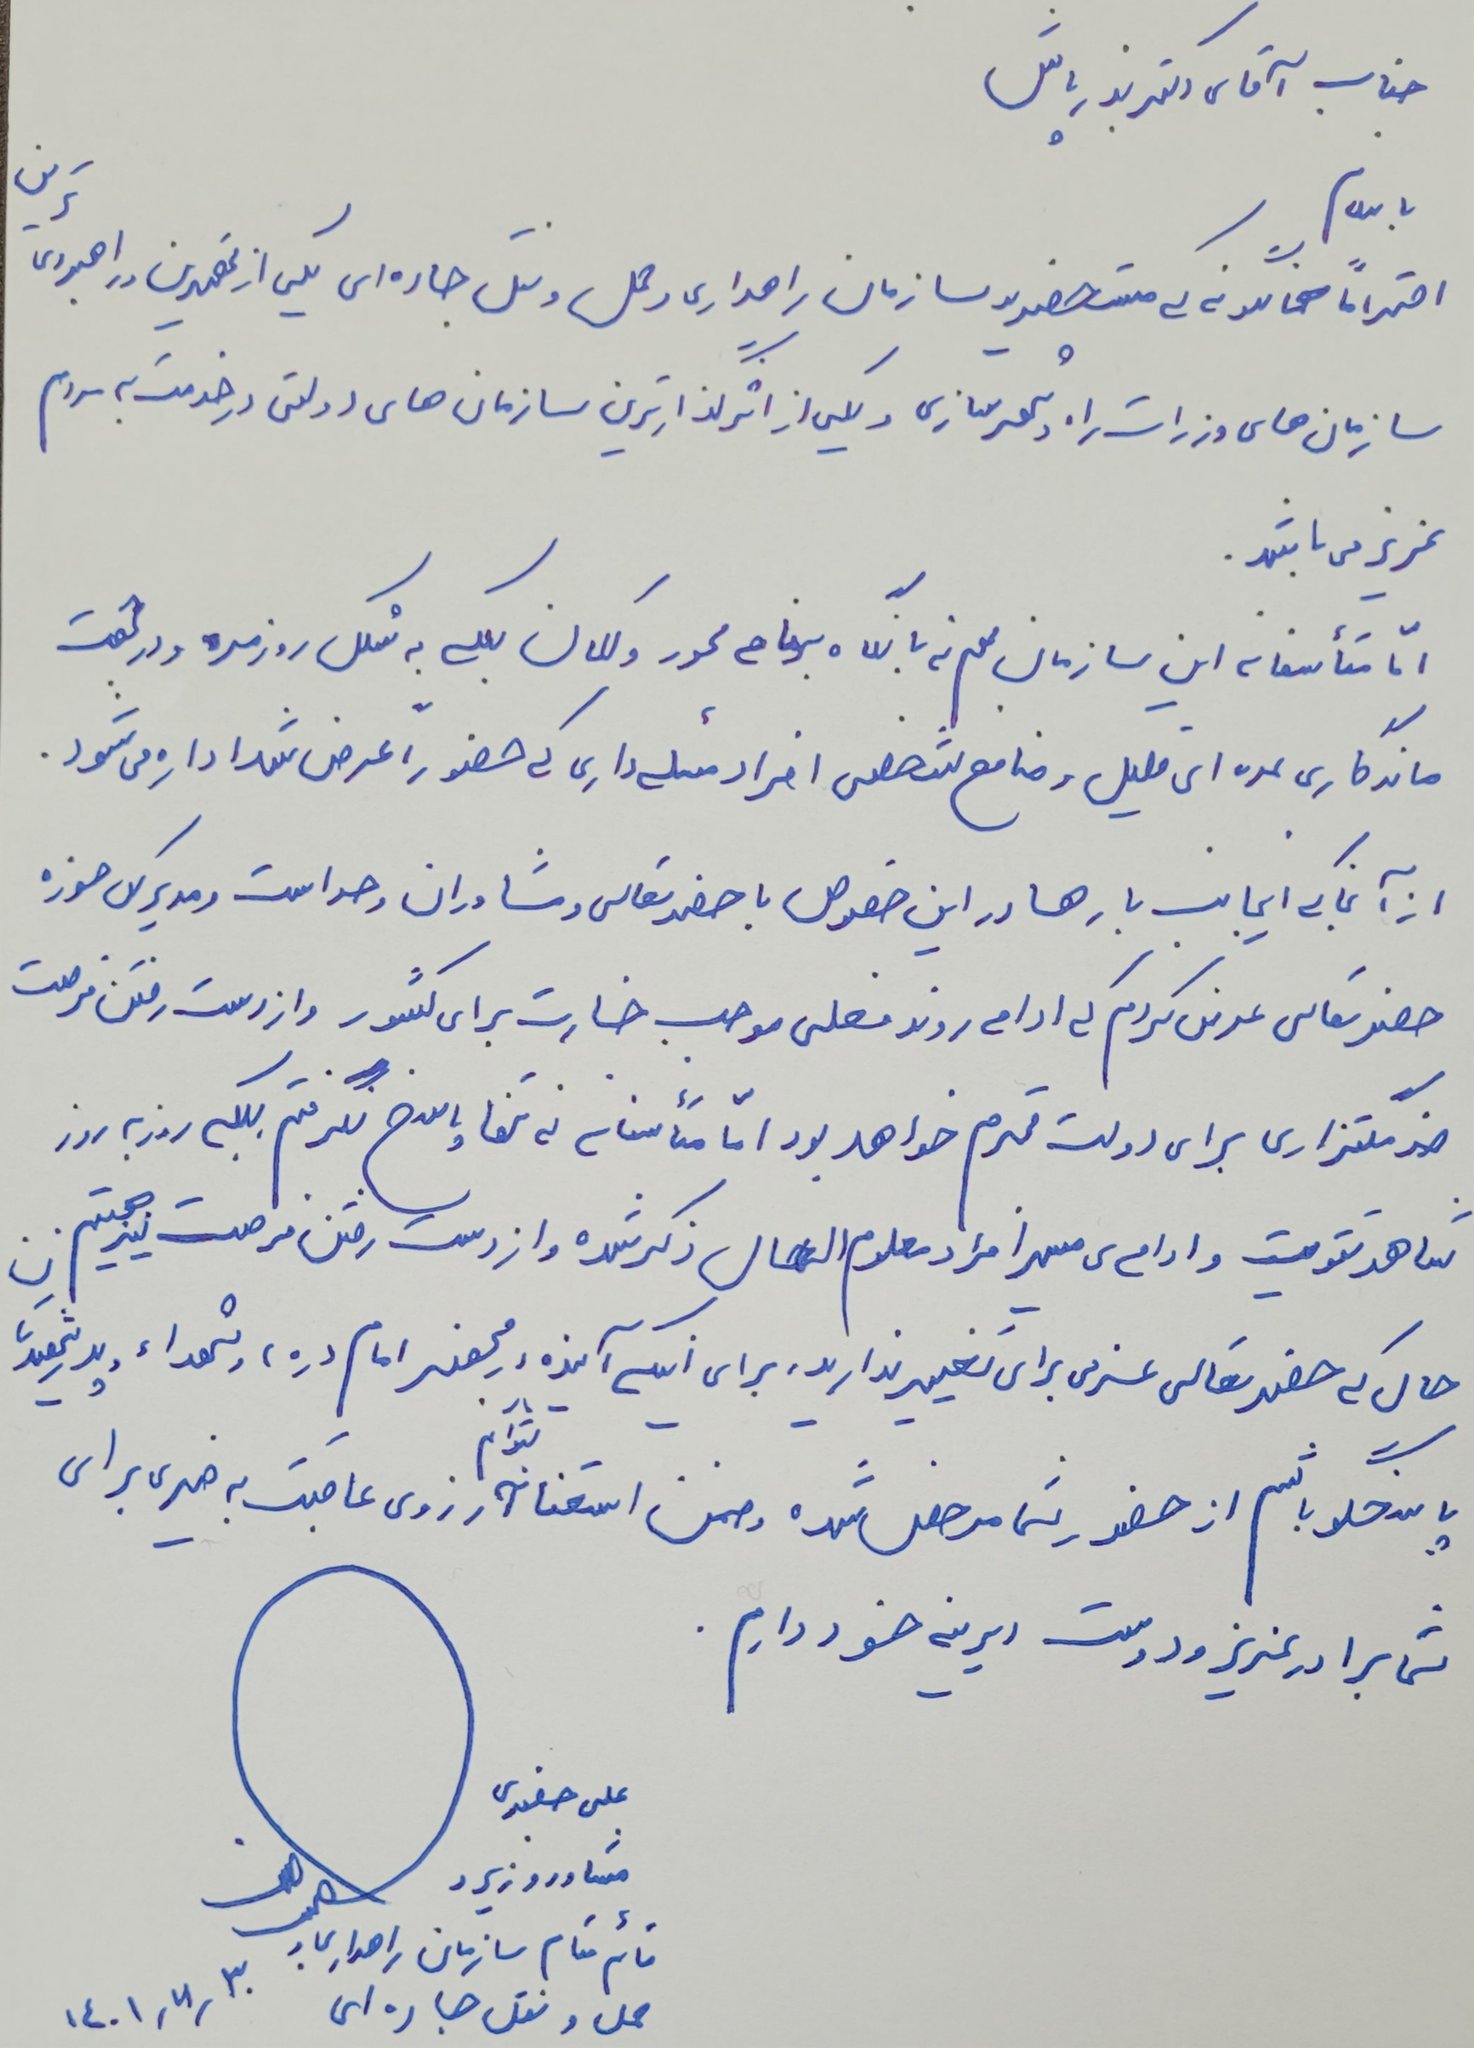 جناب آقای دکتر بذرپاش
با سلام
احتراماً همانگونه که مستحضرید سازمان راهداری و حمل و نقل جاده‌ای یکی از مهمترین و راهبردی‌ترین
سازمان‌های وزرات راه و شهرسازی و یکی از اثرگذارترین سازمان‌های دولتی در خدمت به مردم
عزیز می‌باشد.
امّا متأسفانه این سازمان مهم نه با نگاه برنامه محور و کلان بلکه به شکل روزمره و در جهت
ماندگاری عده‌ای قلیل و منافع شخصی افراد مسئله داری که حضوراً عرض شد اداره می‌شود.
از آنجا که اینجانب بارها در این خصوص با حضرتعالی و مشاوران و حراست و مدیرکل حوزه
حضرتعالی عرض کردم که ادامه روند فعلی موجب خسارت برای کشور و از دست رفتن فرصت
خدمتگزاری برای دولت محترم خواهد بود امّا متأسفانه نه تنها پاسخ نگرفتم بلکه روز به روز
شاهد تقویت و ادامه‌ی مسیر افراد معلوم الحال ذکر شده و از دست رفتن فرصت نیز هستم
حال که حضرتعالی عزمی برای تغییر ندارید، برای اینکه آینده در محضر امام (ره)، و شهداء و پدر شهیدم
پاسخگو باشم از حضورتان مرخص شده و ضمن استعفا آرزوی عاقبت به خیری برای
شما برادر عزیز و دوست دیرینه خود دارم.
علی جعفری
مشاور وزیر و
قائم مقام سازمان راهداری و
حمل و نقل جاده‌ای